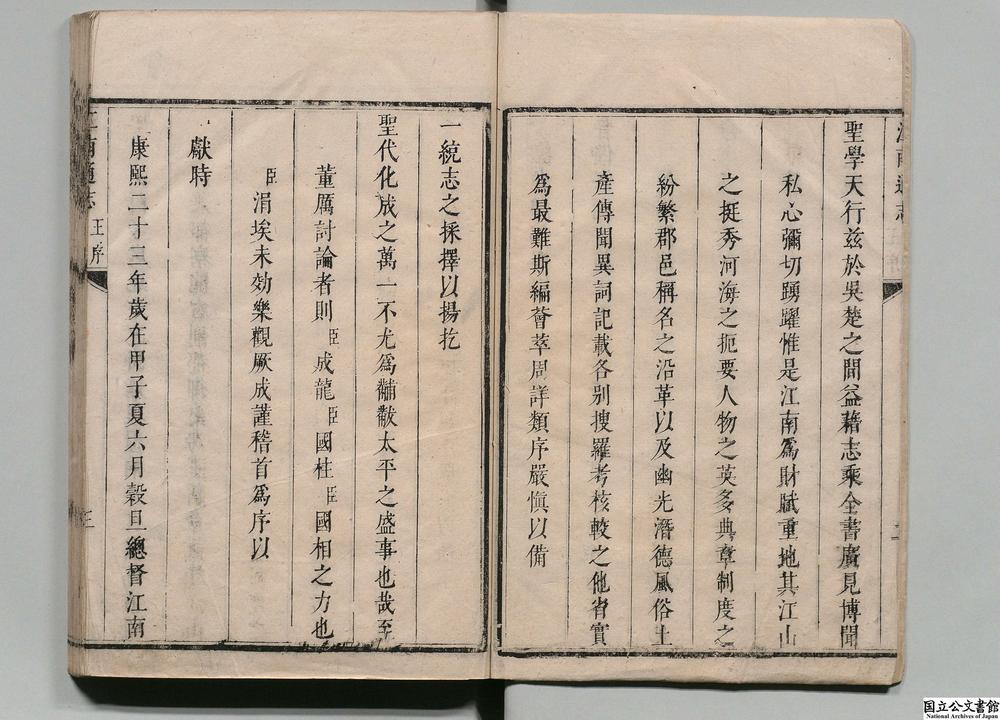 聖學天行兹於吳楚之間益藉志乘全書廣見博聞
私心彌切踴躍惟是江南爲財賦重地其江山
之挺秀河海之扼要人物之英多典章制度之
紛繁郡邑稱名之沿革以及幽光潛德風俗土
產傳聞異詞記載各别搜羅考核較之他省實
爲最難斯編薈萃周詳類序嚴愼以備
一統志之採擇以揚扢
聖代化成之萬一不尤爲黼黻太平之盛事也哉至
董厲討論者則臣成龍臣國柱臣國相之力也
臣涓埃未効樂觀厥成謹稽首爲序以
獻時
康熙二十三年歲在甲子夏六月穀旦總督江南
江南通志 王序 三
国立公文書館
National Archives of Japan